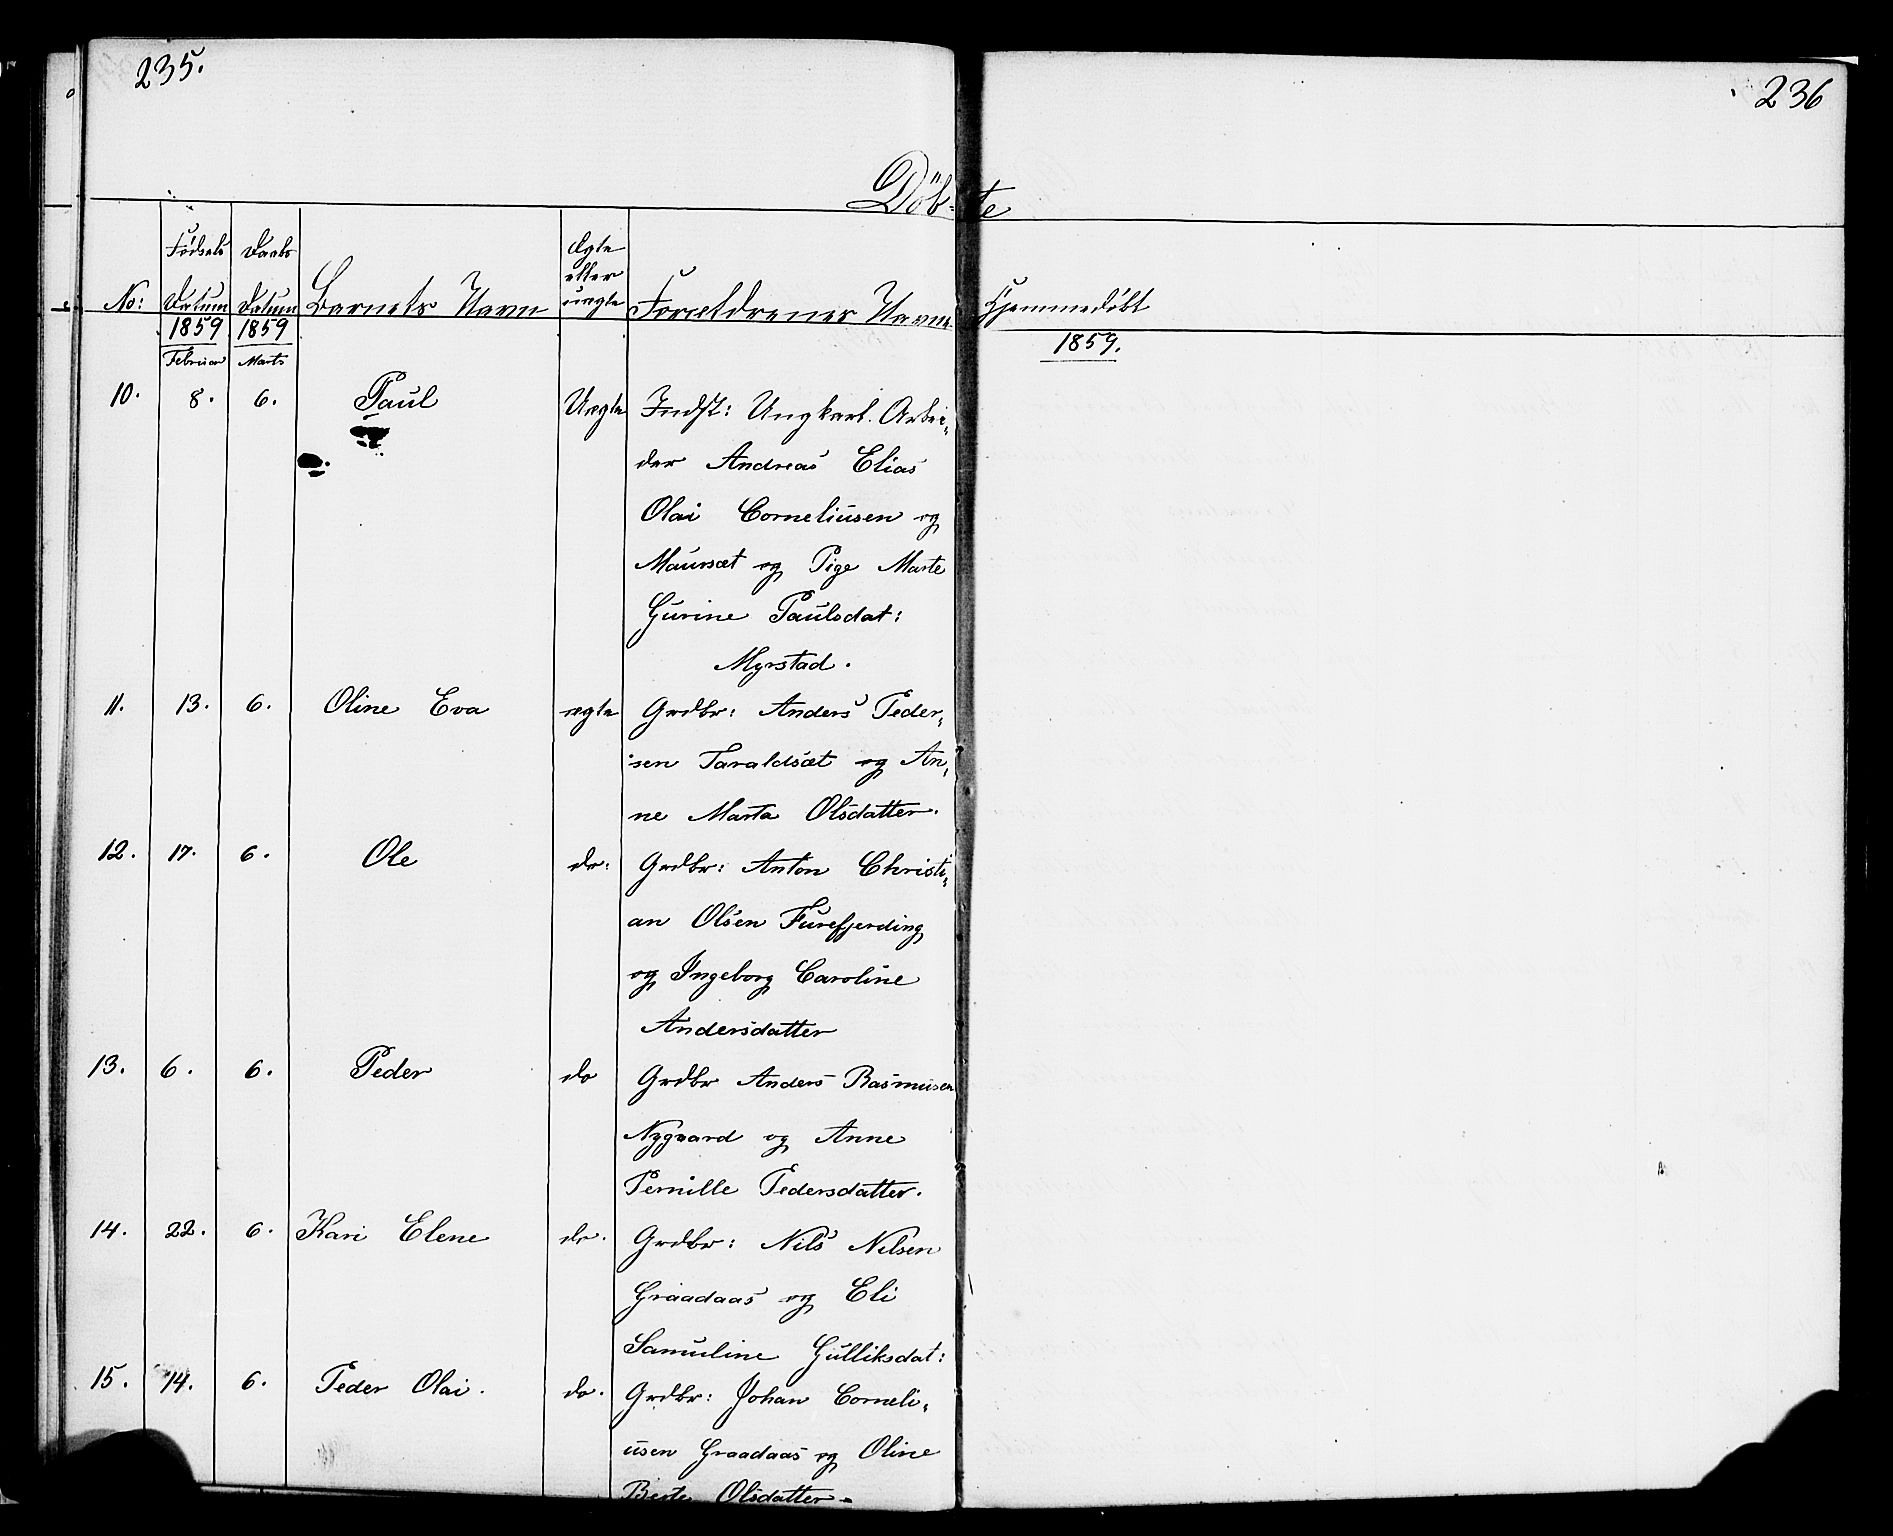 235.
236
Döbte
No:
Fødsels Datum
Daabs Datum
Barnets Navn
Ægte eller uægte
Forældrenes Navne
Hjemmedöbt
1859 1859
1859.
Februar Marts
10. 8. 6. Paul Uægte Indst: Ungkarl. Arbei„
der Andreas Elias
Olai Corneliusen og
Maursæt og Pige Marte
Gurine Paulsdat:
Myrstad.
11. 13. 6. Oline Eva ægte Grdbr: Anders Peder„
sen Taraldsæt og An„
ne Marta Olsdatter.
12. 17. 6. Ole do: Grdbr: Anton Christi„
an Olsen Furefjerding
og Ingeborg Caroline
Andersdatter
13. 6. 6. Peder do Grdbr Anders Rasmusen
Nygaard og Anne
Pernille Pedersdatter.
14. 22. 6. Kari Elene do. Grdbr: Nils Nilsen
Graadaas og Eli
Samuline Gulliksdat:
15. 14. 6. Peder Olai. do. Grdbr: Johan Corneli„
usen Graadaas og Oline
Berte Olsdatter.